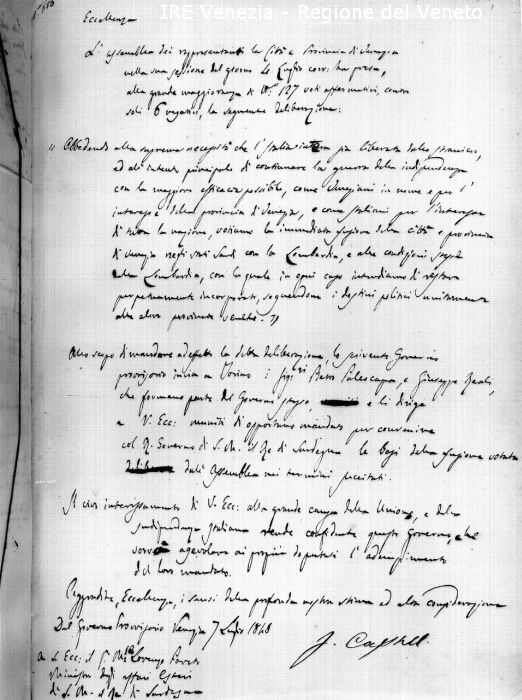 IRE Venezia - Regione del Veneto
Eccellenza
L'assemblea dei rappresentanti la Città e Provincia di Venezia
nella sua sessione del giorno 4 Luglio corr: ha presa,
alla grande maggioranza di N.° 127 voti affermativi, contro
soli 6 negativi, la seguente deliberazione:
" Obbedendo alla suprema necessità che l'Italia intera sia liberata dallo straniero,
ed all'intento principale di continuare la guerra della indipendenza
con la maggiore efficacia possibile, come Veneziani in nome e per l'
interesse della provincia di Venezia, e come italiani per l'interesse
di tutta la nazione, votiamo la immediata fusione della città e provincia
di Venezia negli stati Sardi con la Lombardia, e alle condizioni stesse
della Lombardia, con la quale in ogni caso intendiamo di restare
perpetuamente incorporati, seguendone i destini politici unitamente
alle altre provincie venete. "
Allo scopo di mandare ad effetto la detta deliberazione, lo scrivente Governo
provvisorio invia a Torino i Sig.ri Pietro Paleocapa, e Giuseppe Reali,
che formano parte del Governo stesso, e li dirige
a V. Ecc: muniti di opportuno mandato per convenire
col R. Governo di S. M. il Re di Sardegna le basi della fusione votata
dall'Assemblea nei termini precitati.
Il vivo interessamento di V. Ecc: alla grande causa della Unione, e della
indipendenza italiana rende confidente questo Governo, che
vorrà agevolare ai proprii deputati l'adempimento
del loro mandato.
Aggradite, Eccellenza, i sensi della profonda nostra stima ed alta considerazione
Dal Governo Provvisorio Venezia 7 Luglio 1848
J. Castelli
A S. Ecc: il S. Mse Lorenzo Pareto
Ministro degli affari Esteri
di S. M. il Re di Sardegna